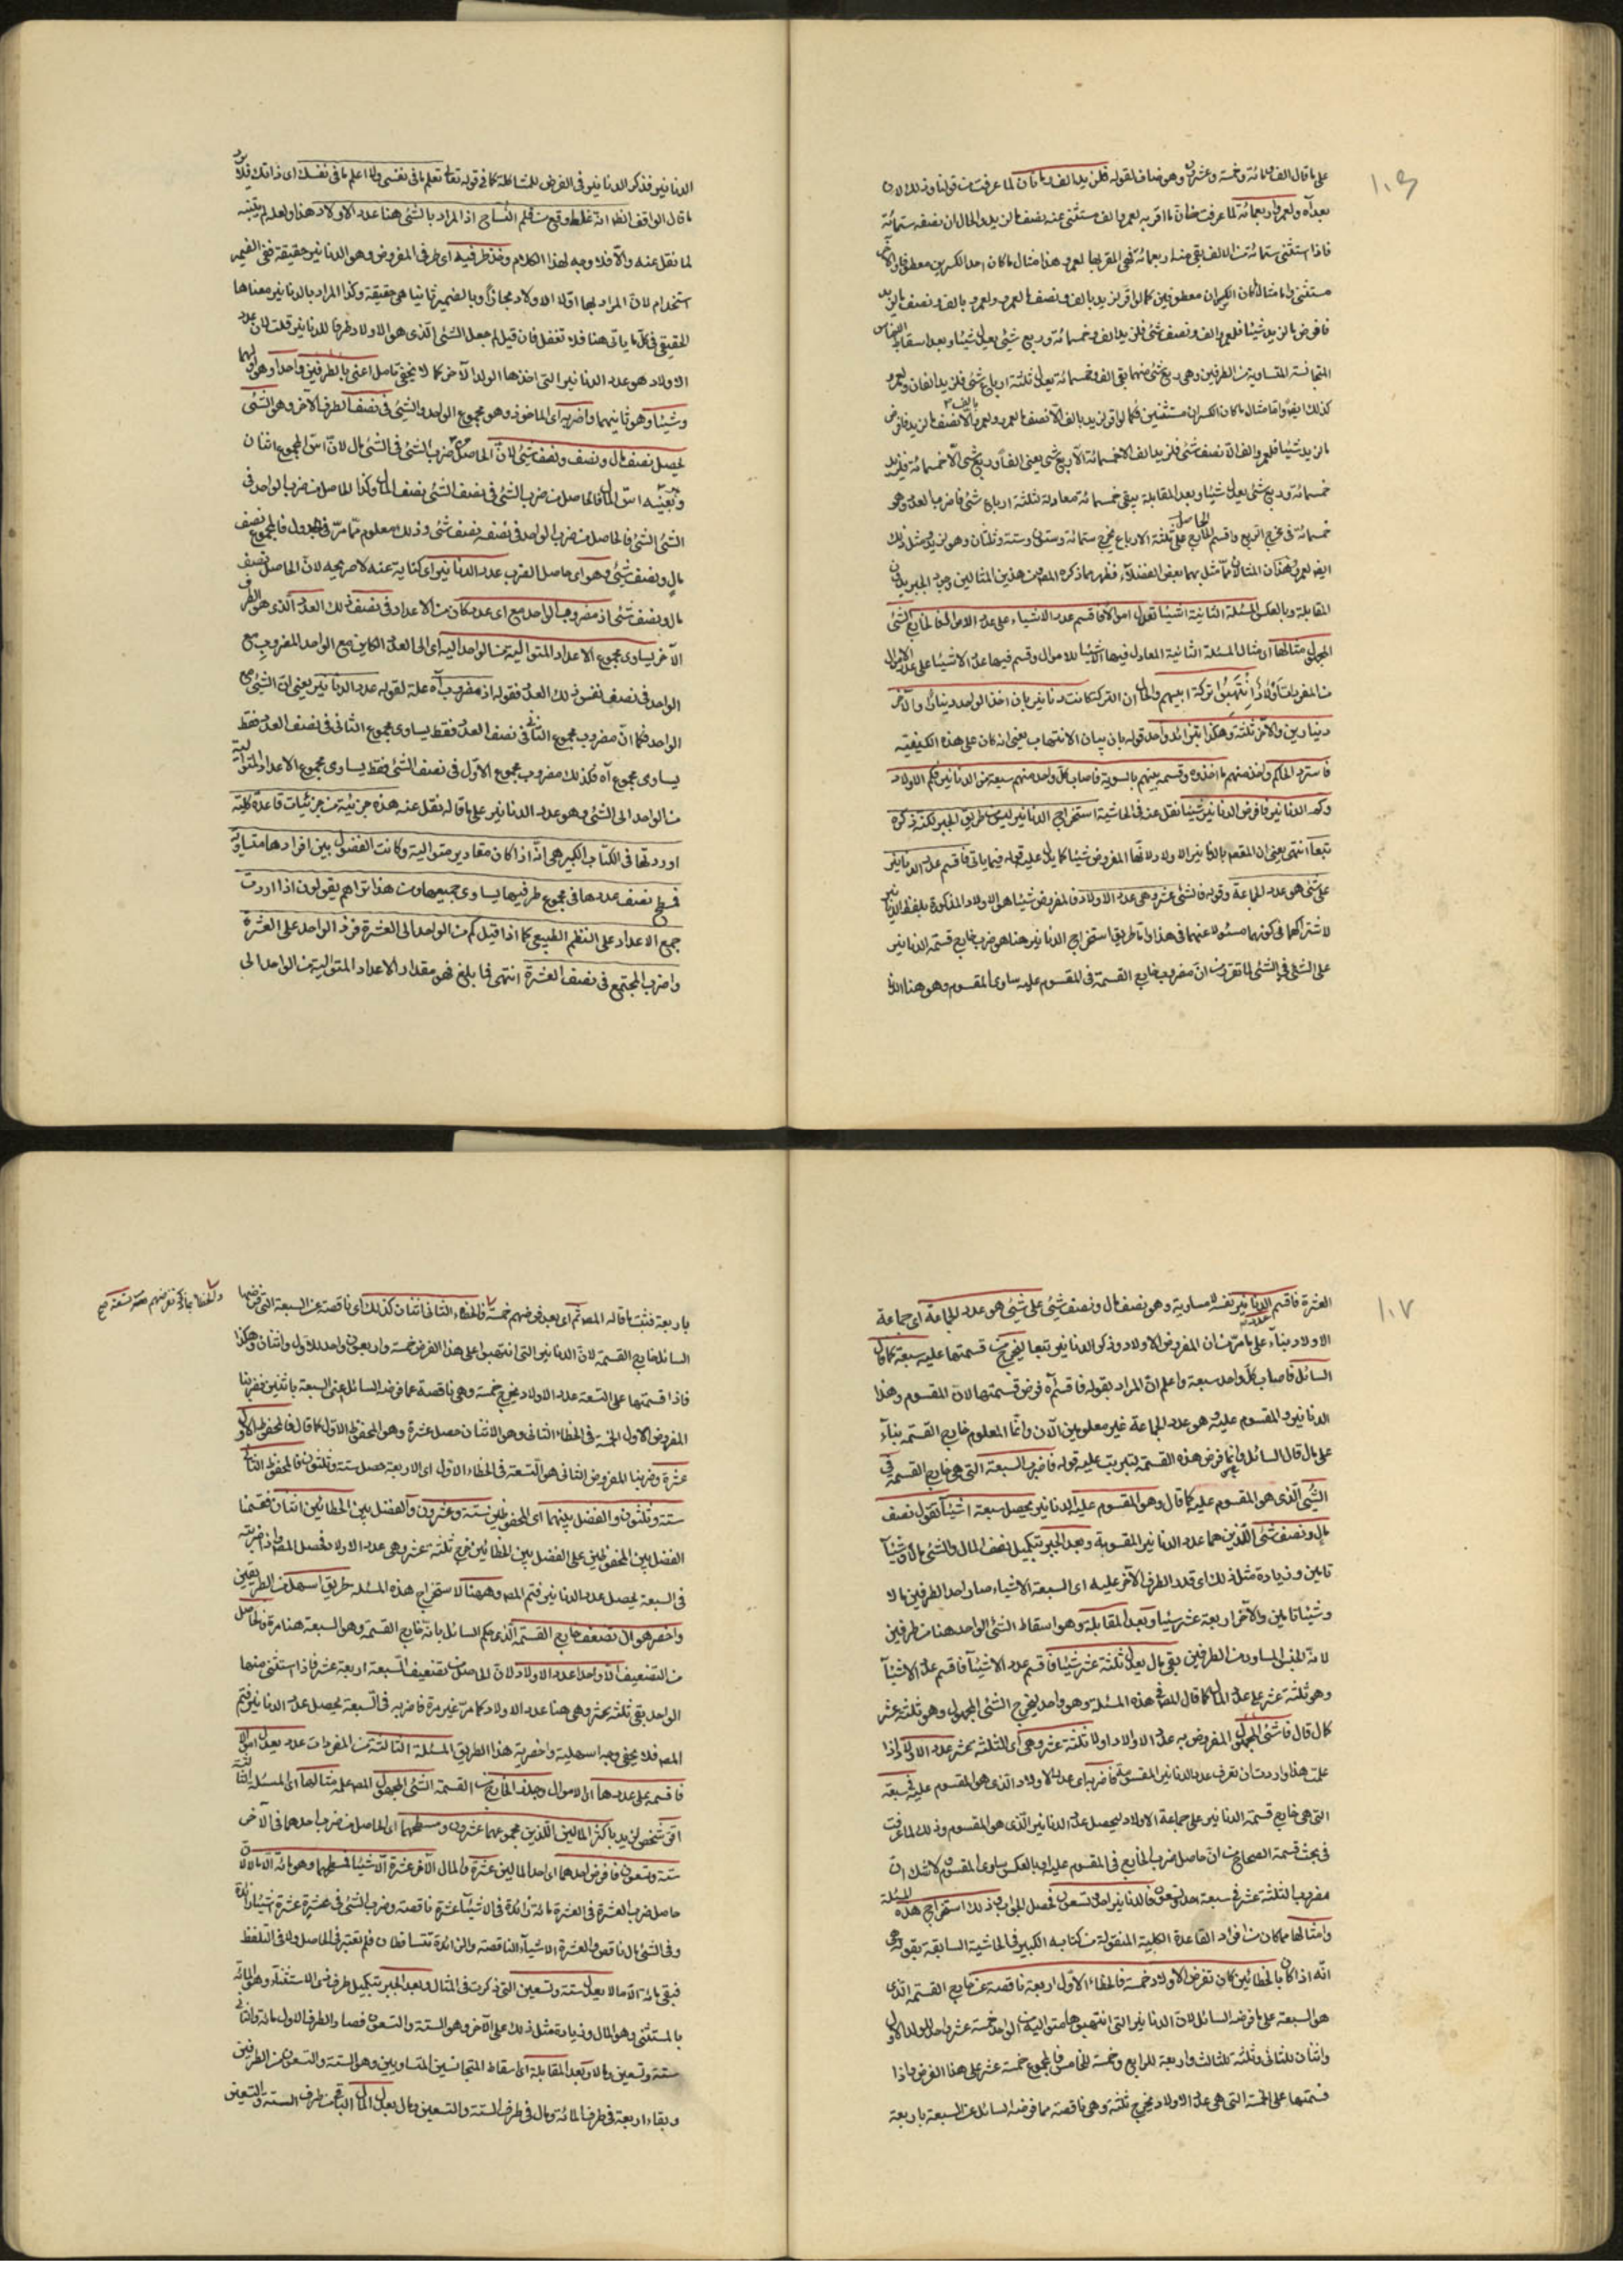 ١٠٦
على ما قال الف ومائة وخمسة وعشرين وهو مناف لقوله فلزيد الف
بعد آه ولعمرو اربعمائة لما عرفت من ان ما اقر به لعمرو الف مستثنى عنه نصف ما لزيد والحال ان نصفه ستمائة
فاذا استثنى ستمائة من الالف بقى منه اربعمائة فهى المقر بها لعمرو هذا مثال ما كان احد الكسرين معطوفا والآخر
مستثنى واما مثال ما كان الكسران معطوفين كما لو اقر لزيد بالف ونصف ما لعمرو ولعمرو بالف ونصف ما لزيد
فافرض ما لزيد شيئا فلعمرو الف ونصف شئ فلزيد الف وخمسمائة وربع شئ يعدل شيئا وبعد اسقاط
المتجانسة المتساوية من الطرفين وهى ربع شئ منهما بقى الف وخمسمائة يعدل ثلثة ارباع شئ فلزيد الفان ولعمرو
كذلك ايضا واما مثال ما كان الكسران مستثنيين فكما لو اقر لزيد بالف الا نصف ما لعمرو ولعمرو بالف الا نصف ما لزيد فافرض
ما لزيد شيئا فلعمرو الف الا نصف شئ فلزيد الف الا خمسمائة الا ربع شئ يعنى الفا وربع شئ الا خمسمائة فلزيد
خمسمائة وربع شئ يعدل شيئا وبعد المقابلة يبقى خمسمائة معادلة لثلثة ارباع شئ فاضرب العدد وهو
خمسمائة فى مخرج الربع واقسم الحاصل على ثلثة الارباع يخرج ستمائة وستة وستون وثلثان وهو لزيد ومثل ذلك
ايضا لعمرو وهذان المثالان مما مثل بهما بعض الفضلاء فظهر مما ذكره المصـ من هذين المثالين وجه الجبر بدون
المقابلة وبالعكس المسئلة الثانية اشياء تعدل اموالا فاقسم عدد الاشياء على عدد الاموال فالخارج الشئ
المجهول مثالها اى مثال المسئلة الثانية المعادل فيها الاشياء للاموال وقسم فيها عدد الاشياء على عدد الاموال
من المفردات اولاد انتهبوا تركة ابيهم والحال ان التركة كانت دنانير بان اخذ الواحد دينارا والآخر
دينارين والآخر ثلثة وهكذا بتزائد واحد قوله بان بيان الانتهاب يعنى انه كان على هذه الكيفية
فاسترد الحاكم واخذ منهم ما اخذوه وقسمه بينهم بالسوية فاصاب كل واحد منهم سبعة من الدنانير فكم الاولاد
وكم الدنانير فافرض الدنانير شيئا نقل عنه فى الحاشية استخراج الدنانير ليس بطريق الجبر لكنه ذكره
تبعا انتهى يعنى ان المقصد بالدنانير الاولاد لانها المفروض شيئا كما يدل عليه قوله فيما ياتى فاقسم عدد الدنانير
على شئ هو عدد الجماعة وقوله فالشئ ثلثة عشر وهى عدد الاولاد فالمفروض شيئا هو الاولاد المذكورة بلفظ الدنانير
لاشتراكهما فى كونهما مسئولا عنهما فى هذا واما طريق استخراج الدنانير هنا هو ضرب خارج قسمة الدنانير
على الشئ فى الشئ لما تقرر من ان مضروب خارج القسمة فى المقسوم عليه يساوى المقسوم وهو هنا
الدنانير فذكر الدنانير فى الفرض للمشاكلة كما فى قوله تعالى تعلم ما فى نفسى ولا اعلم ما فى نفسك اى ذاتك
ما قال الواقف انه غلط وقع من قلم النساخ اذ المراد بالشئ هنا عدد الاولاد هذا ولعله لم يتنبه
لما نقل عنه والا فلا وجه لهذا الكلام وخذ طرفيه اى طرفى المفروض وهو الدنانير حقيقة ففى الضمير
استخدام لان المراد بها اولا الاولاد مجازا وبالضمير ثانيا هى حقيقة وكذا المراد بالدنانير معناها
الحقيقى فى كل ما ياتى هنا فلا تغفل فان قيل لم جعل الشئ الذى هو الاولاد طرفا للدنانير قلت لان عدد
الاولاد هو عدد الدنانير التى اخذها الولد الآخر كما لا يخفى تامل اعنى بالطرفين واحدا وهو اولهما
وشيئا وهو ثانيهما واضربه اى الماخوذ وهو مجموع الواحد والشئ فى نصف الطرف الآخر وهو الشئ
يحصل نصف مال ونصف شئ لان الحاصل من ضرب الشئ فى الشئ مال لان اس المجموع اثنان
الشئ الشئ فالحاصل من ضرب الواحد فى نصفه نصف شئ وذلك معلوم مما مر فى الجدول فالمجموع نصف
مال ونصف شئ وهو اى حاصل الضرب عدد الدنانير اى كناية عنه لا صريحه لان الحاصل نصف
مال ونصف شئ اذ مضروب الواحد مع اى عدد كان من الاعداد فى نصف ذلك العدد الذى هو الطرف
الآخر يساوى مجموع الاعداد المتوالية من الواحد اليه اى الى العدد الكاين مع الواحد المضروب مع
الواحد فى نصف نفس ذلك العدد فقوله اذ مضروب آه علة لقوله عدد الدنانير يعنى ان الشئ مع
الواحد فكما ان مضروب مجموع الثانى فى نصف العدد فقط يساوى مجموع الثانى فى نصف العدد فقط
يساوى مجموع آه فكذلك مضروب مجموع الاول فى نصف الشئ فقط يساوى مجموع الاعداد المتوالية
من الواحد الى الشئ وهو عدد الدنانير على ما قاله نقل عنه هذه جزئية من جزئيات قاعدة كلية
اوردتها فى الكتاب الكبير هى انه اذا كان مقادير متوالية وكانت الفضول بين افرادها متساوية
فسطح نصف عددها فى مجموع طرفيها يساوى جميعها ومن هذا تراهم يقولون اذا اردت
جمع الاعداد على النظم الطبيعى كما اذا قيل كم من الواحد الى العشرة فزد الواحد على العشرة
واضرب المجتمع فى نصف العشرة انتهى فما بلغ فهو مقدار الاعداد المتوالية من الواحد الى
١٠٧
العشرة فاقسم عدد الدنانير نفسه لا مساويه وهو نصف مال ونصف شئ على شئ هو عدد الجماعة اى جماعة
الاولاد بناء على ما مر من ان المفروض الاولاد وذكر الدنانير تبعا ليخرج من قسمتها عليه سبعة كما قال
السائل فاصاب كل واحد سبعة واعلم ان المراد بقوله فاقسم آه فرض قسمتها لان المقسوم وهذا
الدنانير والمقسوم عليه وهو عدد الجماعة غير معلومين الآن وانما المعلوم خارج القسمة بناء
على ما قال السائل وانما فرض هذه القسمة ليترتب عليه قوله فاضرب السبعة التى هى خارج القسمة فى
الشئ الذى هو المقسوم عليه كما قال وهو المقسوم عليه الدنانير يحصل سبعة اشياء تعدل نصف
مال ونصف شئ اللذين هما عدد الدنانير المقسومة وبعد الجبر بتكميل نصف المال والشئ مالا وشيئا
تامين وزيادة مثل ذلك اى قدر الطرف الآخر عليه اى السبعة الاشياء صار احد الطرفين مالا
وشيئا تامين والآخر اربعة عشر شيئا وبعد المقابلة وهو اسقاط الشئ الواحد هنا من طرفين
لانه الجنس المساوى من الطرفين بقى مال يعدل ثلثة عشر شيئا فاقسم عدد الاشياء فاقسم عدد الاشياء
وهو ثلثة عشر على عدد المال كما قال المصـ فى هذه المسئلة وهو واحد يخرج الشئ المجهول وهو ثلثة عشر
كما قال فالشئ المجهول المفروض به عدد الاولاد اولا ثلثة عشر وهى اى الثلثة عشر عدد الاولاد اذا
علمت هذا واردت ان تعرف عدد الدنانير المقسومة فاضربه اى عدد الاولاد الذى هو المقسوم عليه فى سبعة
التى هى خارج قسمة الدنانير على جماعة الاولاد ليحصل عدد الدنانير الذى هو المقسوم وذلك لما عرفت
فى بحث قسمة الصحاح من ان حاصل ضرب الخارج فى المقسوم عليه او بالعكس يساوى المقسوم ولا شك ان
مضروب الثلثة عشر فى سبعة احد وتسعون فالدنانير احد وتسعون فحصل الجواب وذلك استخراج هذه المسئلة
وامثالها مما كان من افراد القاعدة الكلية المنقولة من كتابه الكبير فى الحاشية السابقة بقوله وهى
انه اذا كان بالخطائين كان تفرض الاولاد خمسة فالخطاء الاول اربعة ناقصة عن خارج القسمة الذى
هو السبعة على ما فرضه السائل لان الدنانير التى انتهبوها متوالية من الواحد خمسة عشر واحد للولد الاول
واثنان للثانى وثلثة للثالث واربعة للرابع وخمسة للخامس فالمجموع خمسة عشر على هذا الفرض واذا
قسمتها على الخمسة التى هى عدد الاولاد يخرج ثلثة وهى ناقصة مما فرضه السائل عن السبعة باربعة
باربعة فثبت ما قاله المصـ ثم اى بعد فرضهم خمسة فالخطاء الثانى اثنان كذلك اى ناقصة عن السبعة التى فرضها
السائل خارج القسمة لان الدنانير التى انتهبوا على هذا الفرض خمسة واربعون واحد للاول واثنان وهكذا
فاذا قسمتها على التسعة عدد الاولاد يخرج خمسة وهى ناقصة عما فرضه السائل اعنى السبعة باثنين فضربنا
المفروض الاول الخمسة فى الخطاء الثانى وهو الاثنان حصل عشرة وهو المحفوظ الاول كما قال فالمحفوظ الاول
عشرة وضربنا المفروض الثانى هو التسعة فى الخطاء الاول اى الاربعة حصل ستة وثلثون فالمحفوظ الثانى
ستة وثلثون والفضل بينهما اى المحفوظين ستة وعشرون والفضل بين الخطائين اثنان فقسمنا
الفضل بين المحفوظين على الفضل بين الخطائين خرج ثلثة عشر وهى عدد الاولاد فحصل المطـ واذا ضربته
فى السبعة يحصل عدد الدنانير فتم المصـ وههنا لاستخراج هذه المسئلة طريق اسهل من الطريقين
واخصر هو ان تضعف خارج القسمة الذى حكم السائل بانه خارج القسمة وهو السبعة هنا مرة فالحاصل
من التضعيف الا واحدا عدد الاولاد لان الحاصل من تضعيف السبعة اربعة عشر فاذا استثنى منها
الواحد بقى ثلثة عشر وهى هنا عدد الاولاد كما مر غير مرة فاضربه فى السبعة يحصل عدد الدنانير فتم
المصـ فلا يخفى وجه اسهلية واخصرية هذا الطريق المسئلة الثالثة من المفردات عدد يعدل اموالا
فاقسمه على عددها اى الاموال وجذر الخارج من القسمة الشئ المجهول المصـ علمه مثالها اى المسئلة الثالثة
اقر شخص لزيد باكثر المالين اللذين مجموعهما عشرون ومسطحهما اى الحاصل من ضرب احدهما فى الآخر
ستة وتسعون فافرض احدهما اى احد المالين عشرة والمال الآخر عشرة الا شيئا فمسطحهما وهو مائة الا مالا
حاصل ضرب العشرة فى العشرة مائة زائدة فى الاشياء عشرة ناقصة وضرب الشئ فى عشرة عشرة اشياء زائدة
وفى الشئ مال ناقص والعشرة الاشياء الناقصة والزائدة تتساقطان فلم تعتبر فى الحاصل ولا فى التلفظ
فبقى مائة الا مالا يعدل ستة وتسعين التى ذكرت فى المثال وبعد الجبر بتكميل طرف ذى الاستثناء وهو المائة
بالمستثنى وهو المال وزيادة مثل ذلك على الآخر وهو الستة والتسعون فصار الطرف الاول مائة والثانى
ستة وتسعين ومالا وبعد المقابلة اى اسقاط المتجانسين المتساويين وهو الستة والتسعون من الطرفين
وبقاء اربعة فى طرف المائة ومال فى طرف الستة والتسعين ومال يعدل المال الباقى من طرف الستة والتسعين